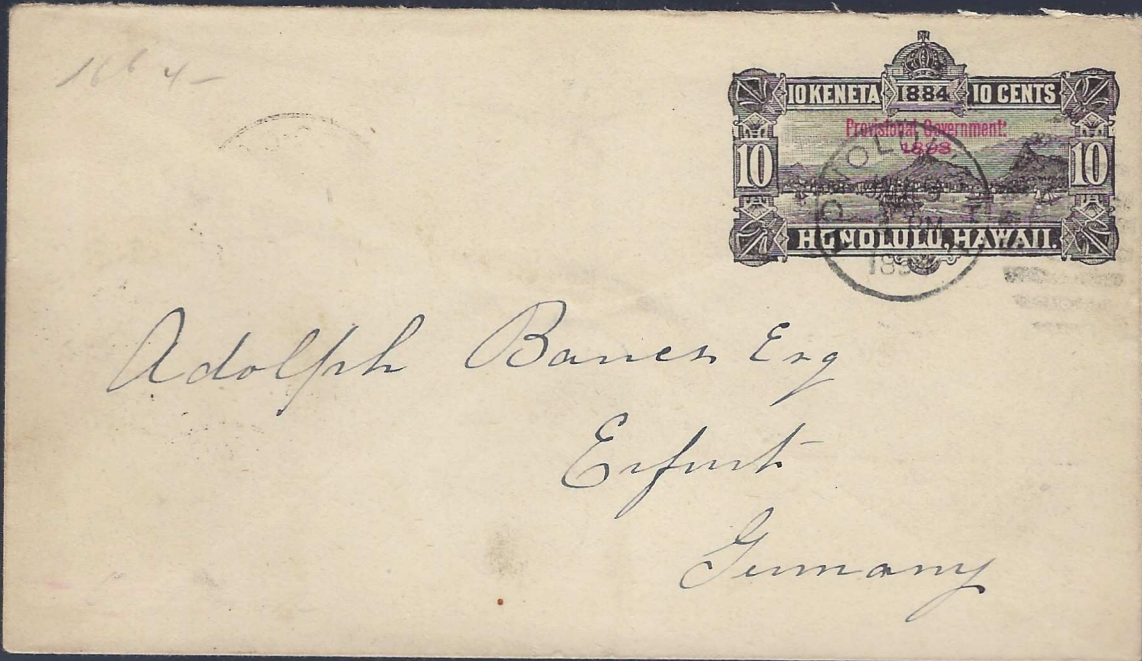 10 KENETA 1884 10 CENTS
Provisional Government
1893
10 10
HONOLULU, HAWAII.
HONOLULU
PM
Adolph Esq
Erfurt
Germany